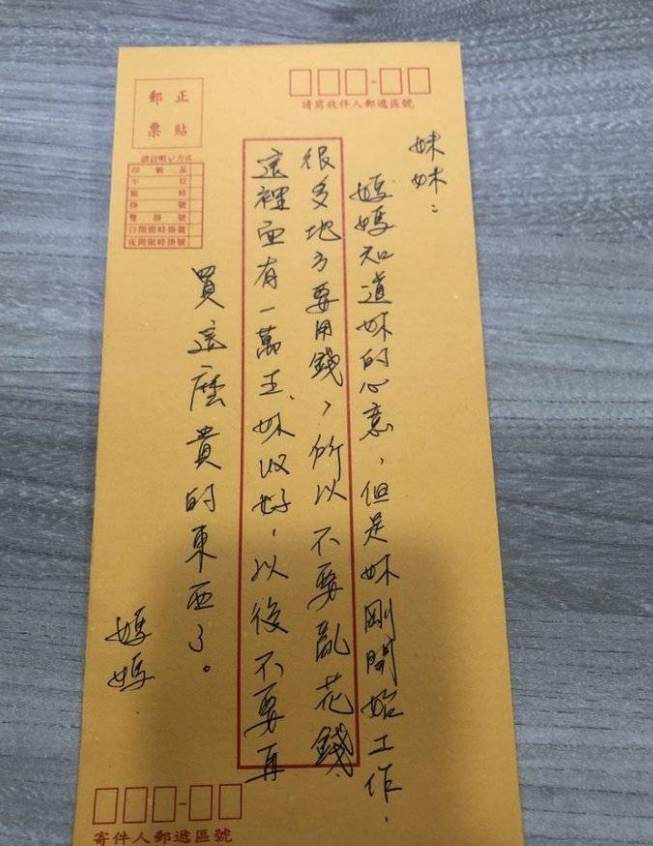 請寫收件人郵遞區號
正貼
郵票
掛號
雙掛號
妹妹:
媽媽知道妹的心意,但是妹剛開始工作,
很多地方要用錢,所以不要亂花錢
這裡面有一萬五、妹收好,以後不要再
買這麼貴的東西了。
媽媽
寄件人郵遞區號